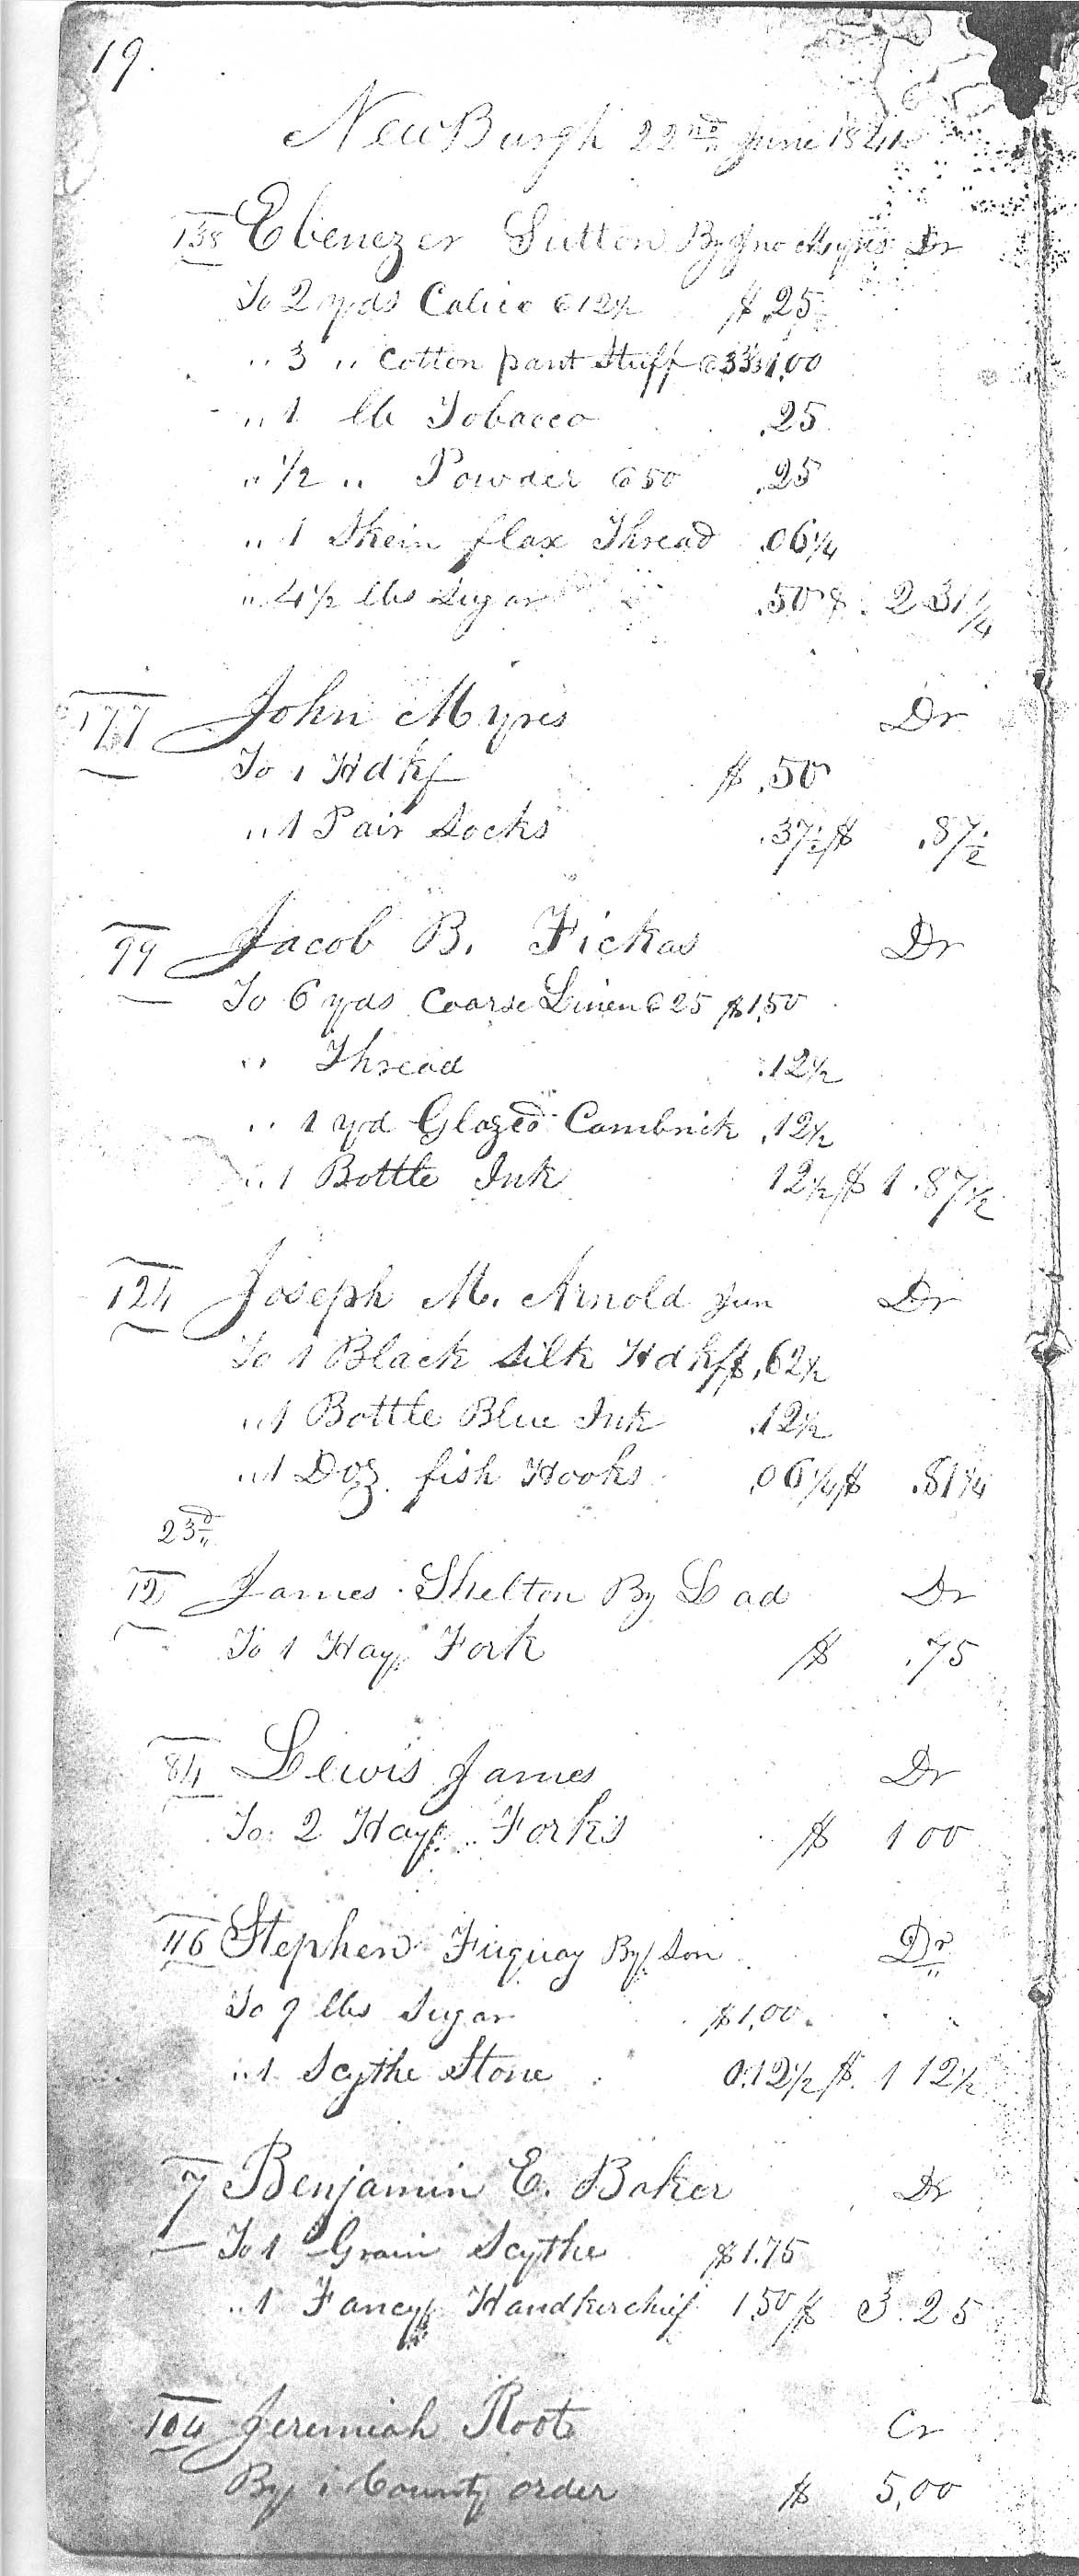 19.
NewBurgh 22nd June 1841
138 Ebenezer Sutton By Jno Myres Dr
To 2 yds Calico @ 12½ $ .25
" 3 " Cotton pant Stuff @ 33⅓ 1,00
" 1 lb Tobacco .25
" 1/2 " Powder @ 50 .25
" 1 Skein flax Thread .06¼
" 4½ lbs Sugar .50 $ 2 31¼
177 John Myres Dr
To 1 Hdkf $ .50
" 1 Pair Socks .37½ $ .87½
99 Jacob B. Fickas Dr
To 6 yds Coarse Linen @ 25 $1,50
" Thread .12½
" 1 yd Glazed Cambrick .12½
" 1 Bottle Ink 12½ $ 1.87½
124 Joseph M. Arnold Jun Dr
To 1 Black Silk Hdkf $ .62½
" 1 Bottle Blue Ink .12½
" 1 Doz. fish Hooks .06¼ $ .81¼
23d
12 James Shelton By Lad Dr
To 1 Hay Fork $ .75
84 Lewis James Dr
To 2 Hay Forks $ 1 00
116 Stephen Fuquay By Son Dr
To 9 lbs Sugar $1,00
" 1 Scythe Stone 0.12½ $ 1 12½
7 Benjamin E. Baker Dr
To 1 Grain Scythe $1.75
" 1 Fancy Handkerchief 1 50 $ 3.25
104 Jeremiah Root Cr
By 1 County order $ 5,00